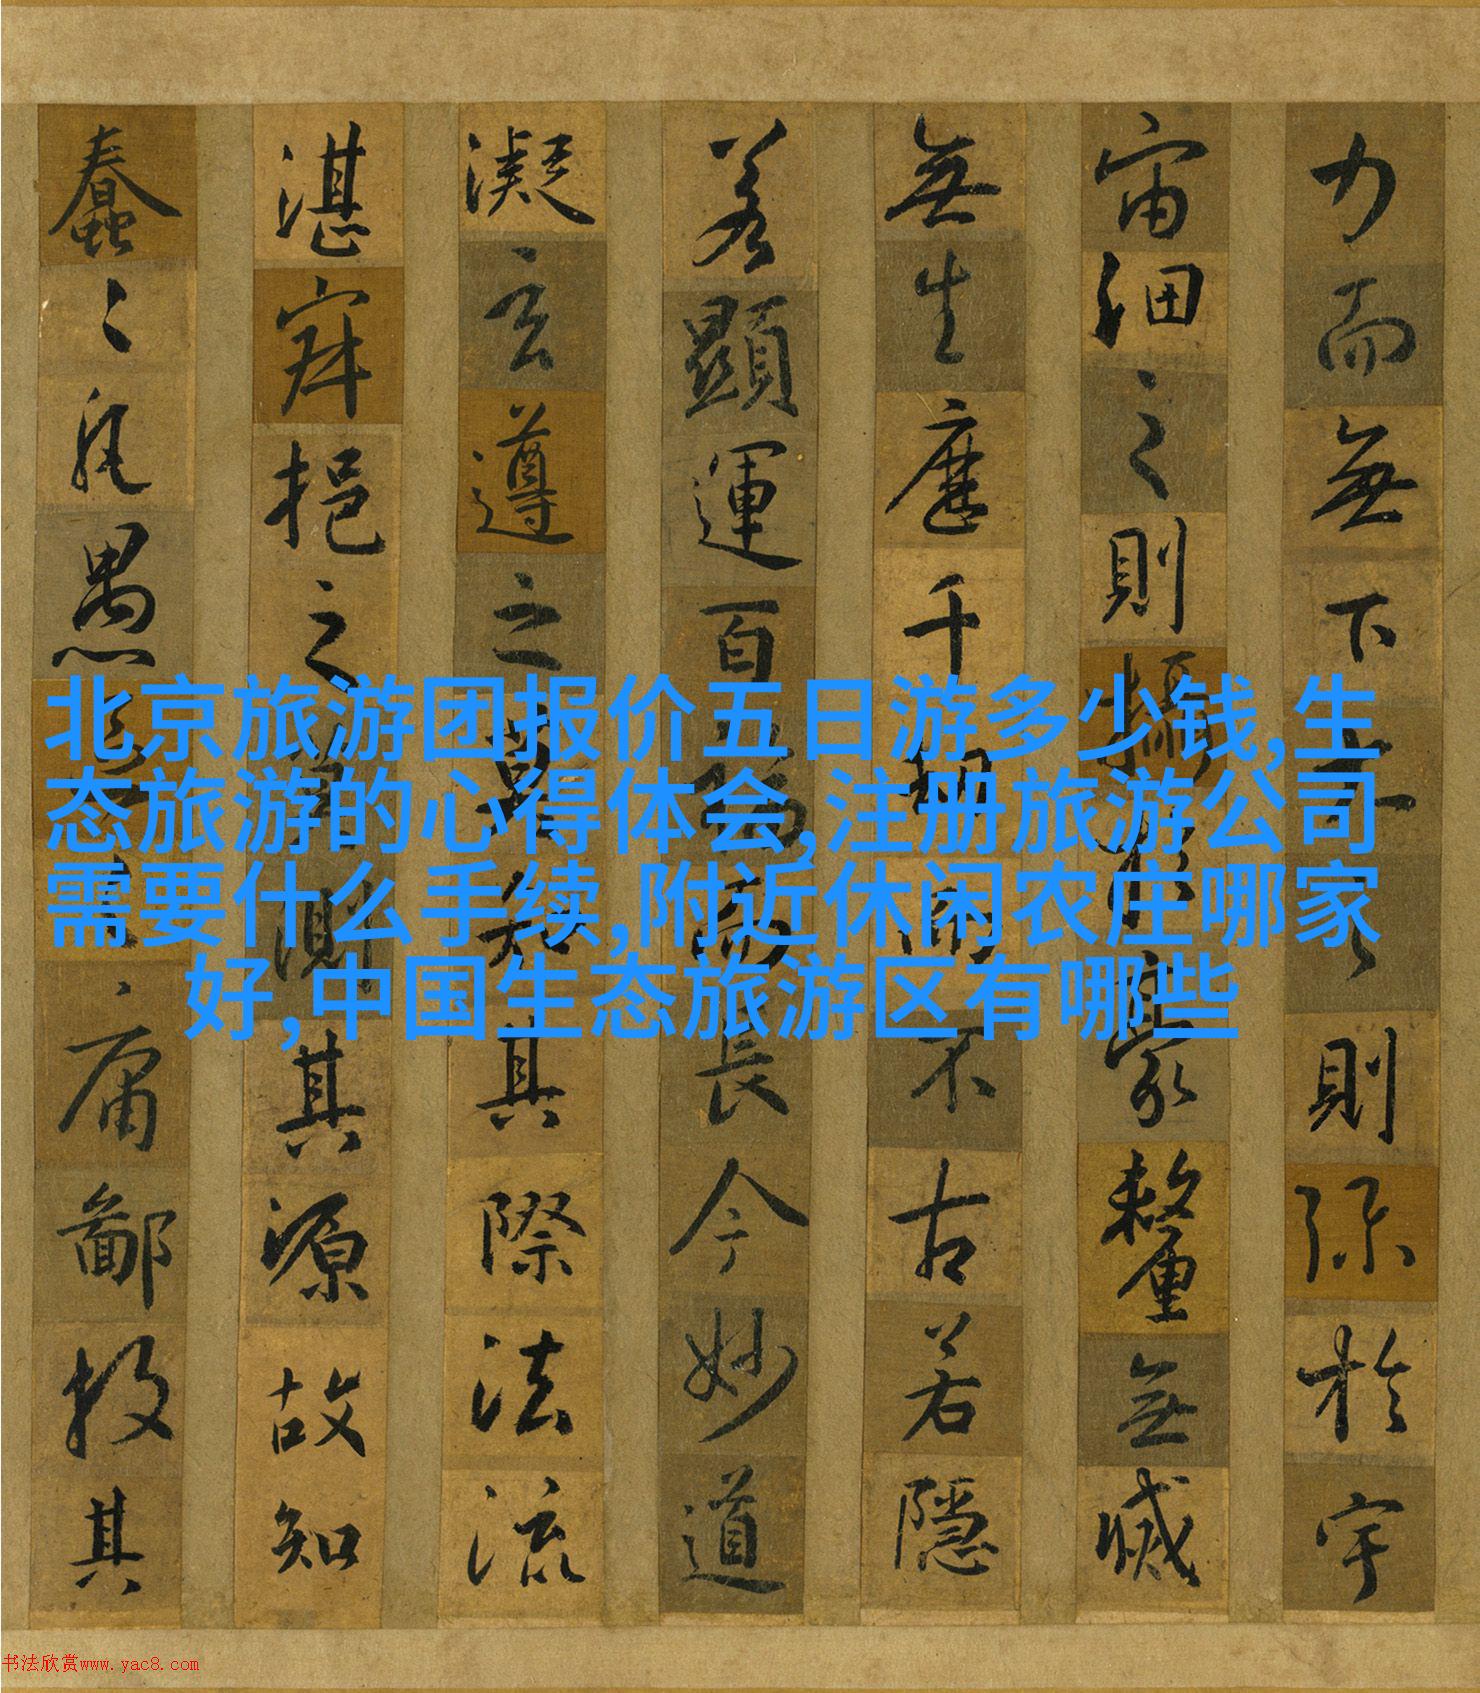 力而無下大之則弥於宇
宙細之則攝於豪釐無滅
無生歷千劫而不古若隱
若顯運百福而長今妙道
凝玄遵之莫知其際法流
湛寂挹之莫測其源故知
蠢〻凡愚區〻庸鄙投其
北京旅游团报价五日游多少钱,生
态旅游的心得体会,注册旅游公司
需要什么手续,附近休闲农庄哪家
好,中国生态旅游区有哪些
书法欣赏www.yac8.com